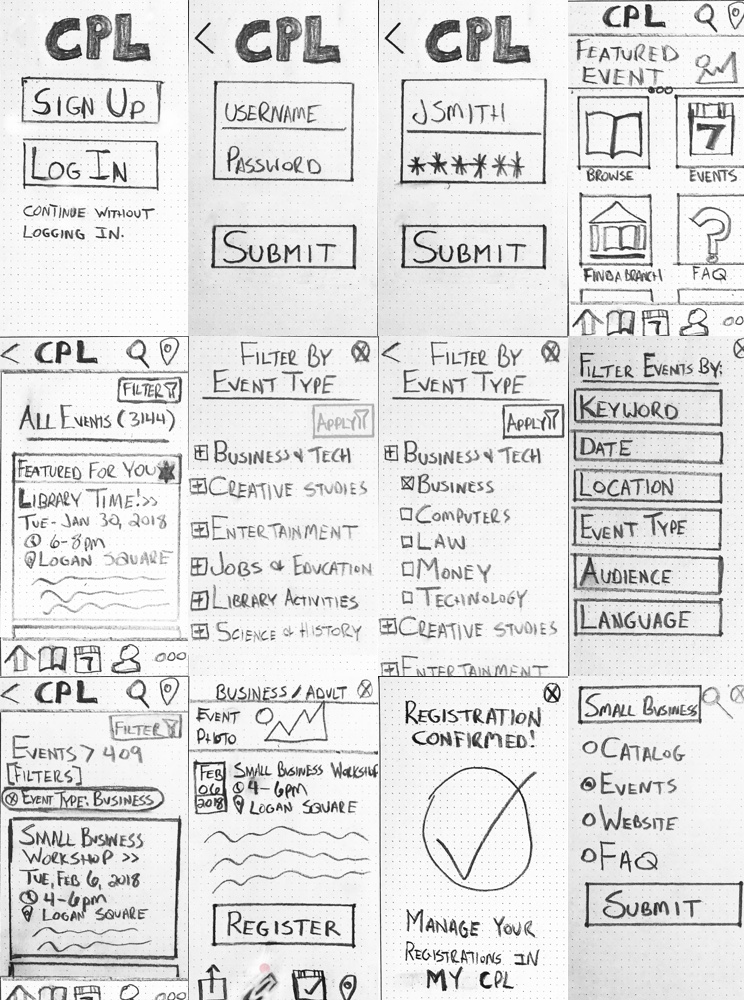 CPL
SIGN UP
LOG IN
CONTINUE WITHOUT
LOGGING IN.
CPL
USERNAME
PASSWORD
SUBMIT
CPL
JSMITH
******
SUBMIT
CPL
FEATURED
EVENT
7
BROWSE
EVENTS
FIND A BRANCH
FAQ
7
CPL
FILTER
ALL EVENTS (3144)
FEATURED FOR YOU
LIBRARY TIME! >>
TUE - JAN 30, 2018
6-8pm
LOGAN SQUARE
7
FILTER BY
EVENT TYPE
APPLY
BUSINESS & TECH
CREATIVE STUDIES
ENTERTAINMENT
JOBS & EDUCATION
LIBRARY ACTIVITIES
SCIENCE & HISTORY
FILTER BY
EVENT TYPE
APPLY
BUSINESS & TECH
BUSINESS
COMPUTERS
LAW
MONEY
TECHNOLOGY
CREATIVE STUDIES
ENTERTAINMENT
FILTER EVENTS BY:
KEYWORD
DATE
LOCATION
EVENT TYPE
AUDIENCE
LANGUAGE
CPL
FILTER
EVENTS > 409
[FILTERS]
EVENT TYPE: BUSINESS
SMALL BUSINESS
WORKSHOP >>
TUE, FEB 6, 2018
4-6pm
LOGAN SQUARE
7
BUSINESS / ADULT
EVENT
PHOTO
FEB
06
2018
SMALL BUSINESS WORKSHOP
4-6pm
LOGAN SQUARE
REGISTER
REGISTRATION
CONFIRMED!
MANAGE YOUR
REGISTRATIONS IN
MY CPL
SMALL BUSINESS
CATALOG
EVENTS
WEBSITE
FAQ
SUBMIT